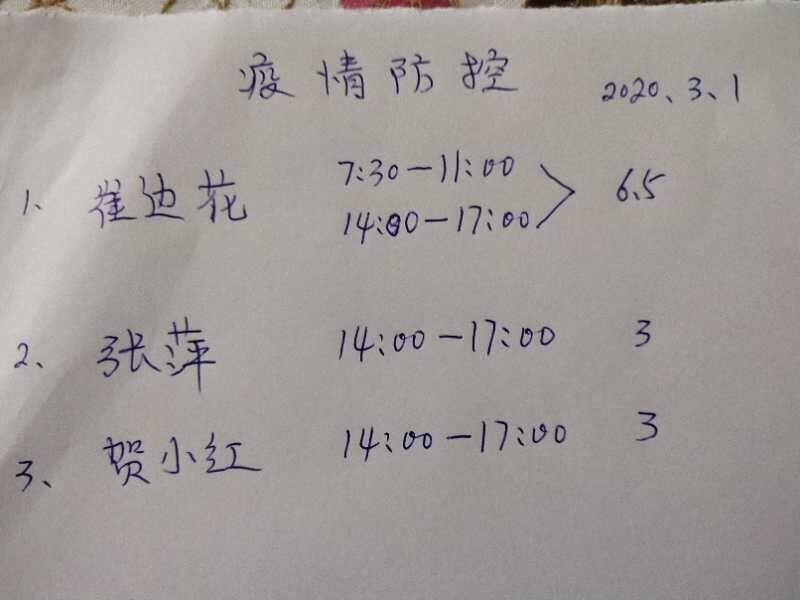 疫情防控 2020、3、1
1、崔边花 7:30—11:00
14:00—17:00 6.5
2、张萍 14:00—17:00 3
3、贺小红 14:00—17:00 3